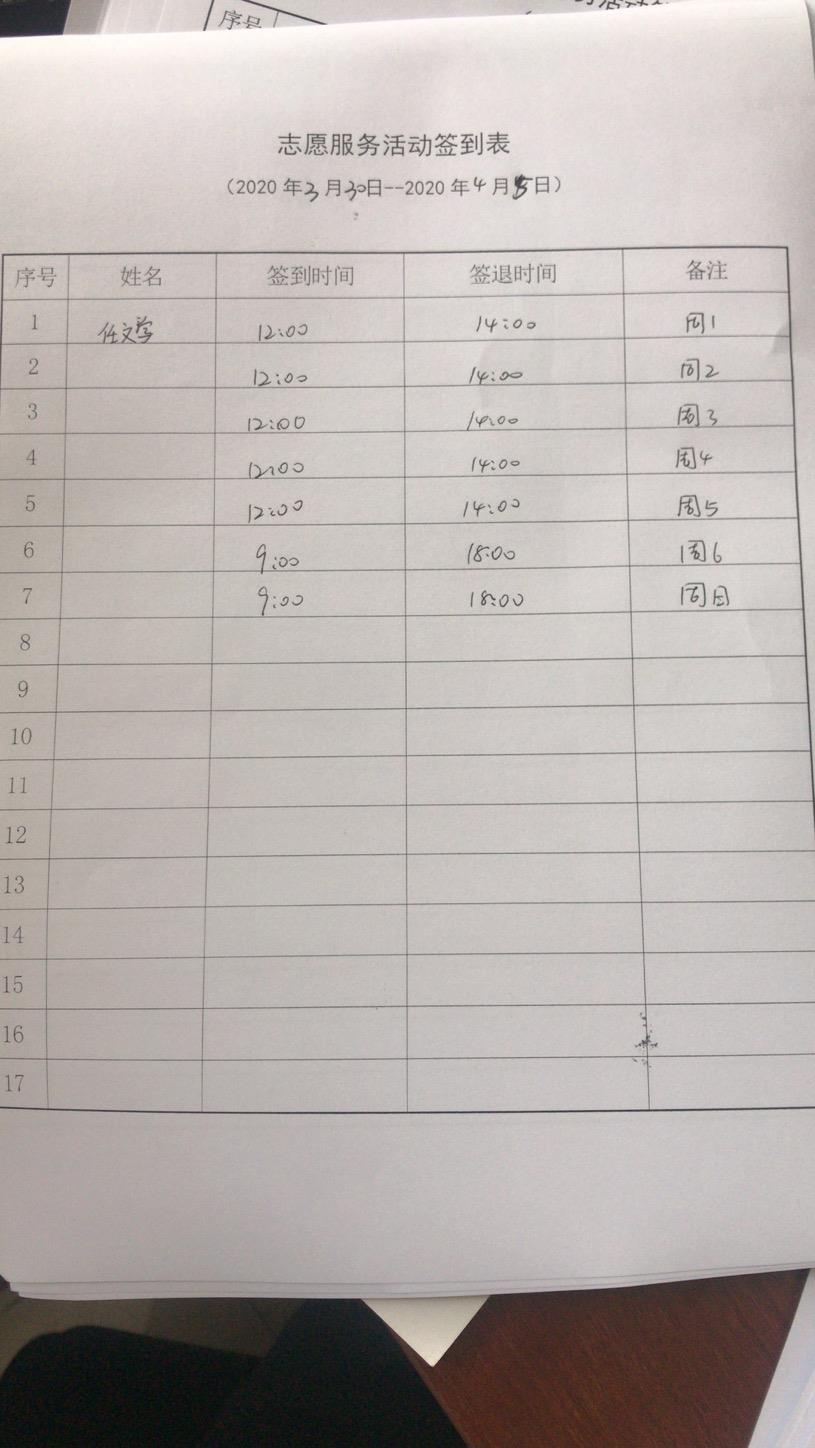 序号
志愿服务活动签到表
（2020 年3月30日--2020 年4月5日）
序号 姓名 签到时间 签退时间 备注
1 任文学 12:00 14:00 周1
2 12:00 14:00 周2
3 12:00 14:00 周3
4 12:00 14:00 周4
5 12:00 14:00 周5
6 9:00 18:00 周6
7 9:00 18:00 周日
8
9
10
11
12
13
14
15
16
17